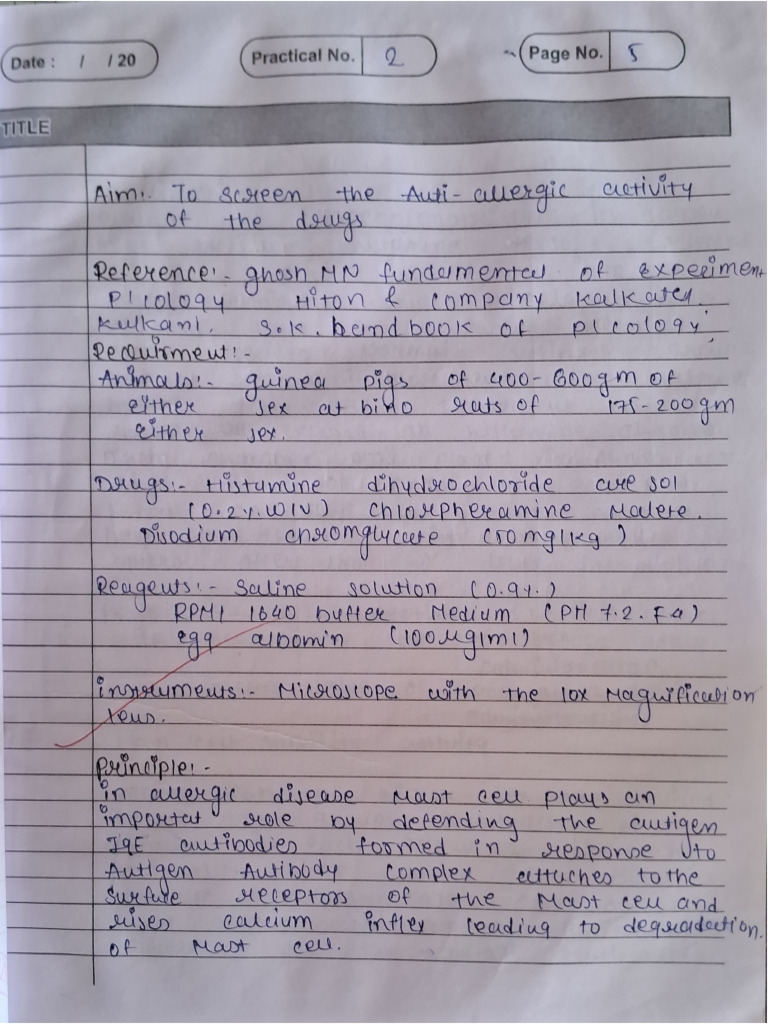 Date : / / 20
Practical No. 2
Page No. 5
TITLE
Aim:- To screen the Anti-allergic activity
of the drugs
Reference:- ghosh MN fundamental of experiment
P/cology Hiton & company Kalkated.
Kulkani. S.K. handbook of p/cology.
Requirment:-
Animals:- guinea pigs of 400-600gm of
either sex at bino rats of 175-200gm
either sex.
Drugs:- Histamine dihydrochloride are sol
(0.2%.W/V) chlorpheramine Malete.
Disodium chromglycate (50mg/kg)
Reagents:- Saline solution (0.9%.)
RPMI 1640 buffer Medium (PH 7.2.F4)
egg albomin (100μg/ml)
instruments:- Microscope with the 10x Magnification
lens.
principle:-
in allergic disease Mast cell plays an
importat role by defending the antigen
IgE antibodies formed in response to
Antigen Antibody complex attaches to the
surface receptors of the Mast cell and
rises calcium inflex leading to degradation.
of Mast cell.